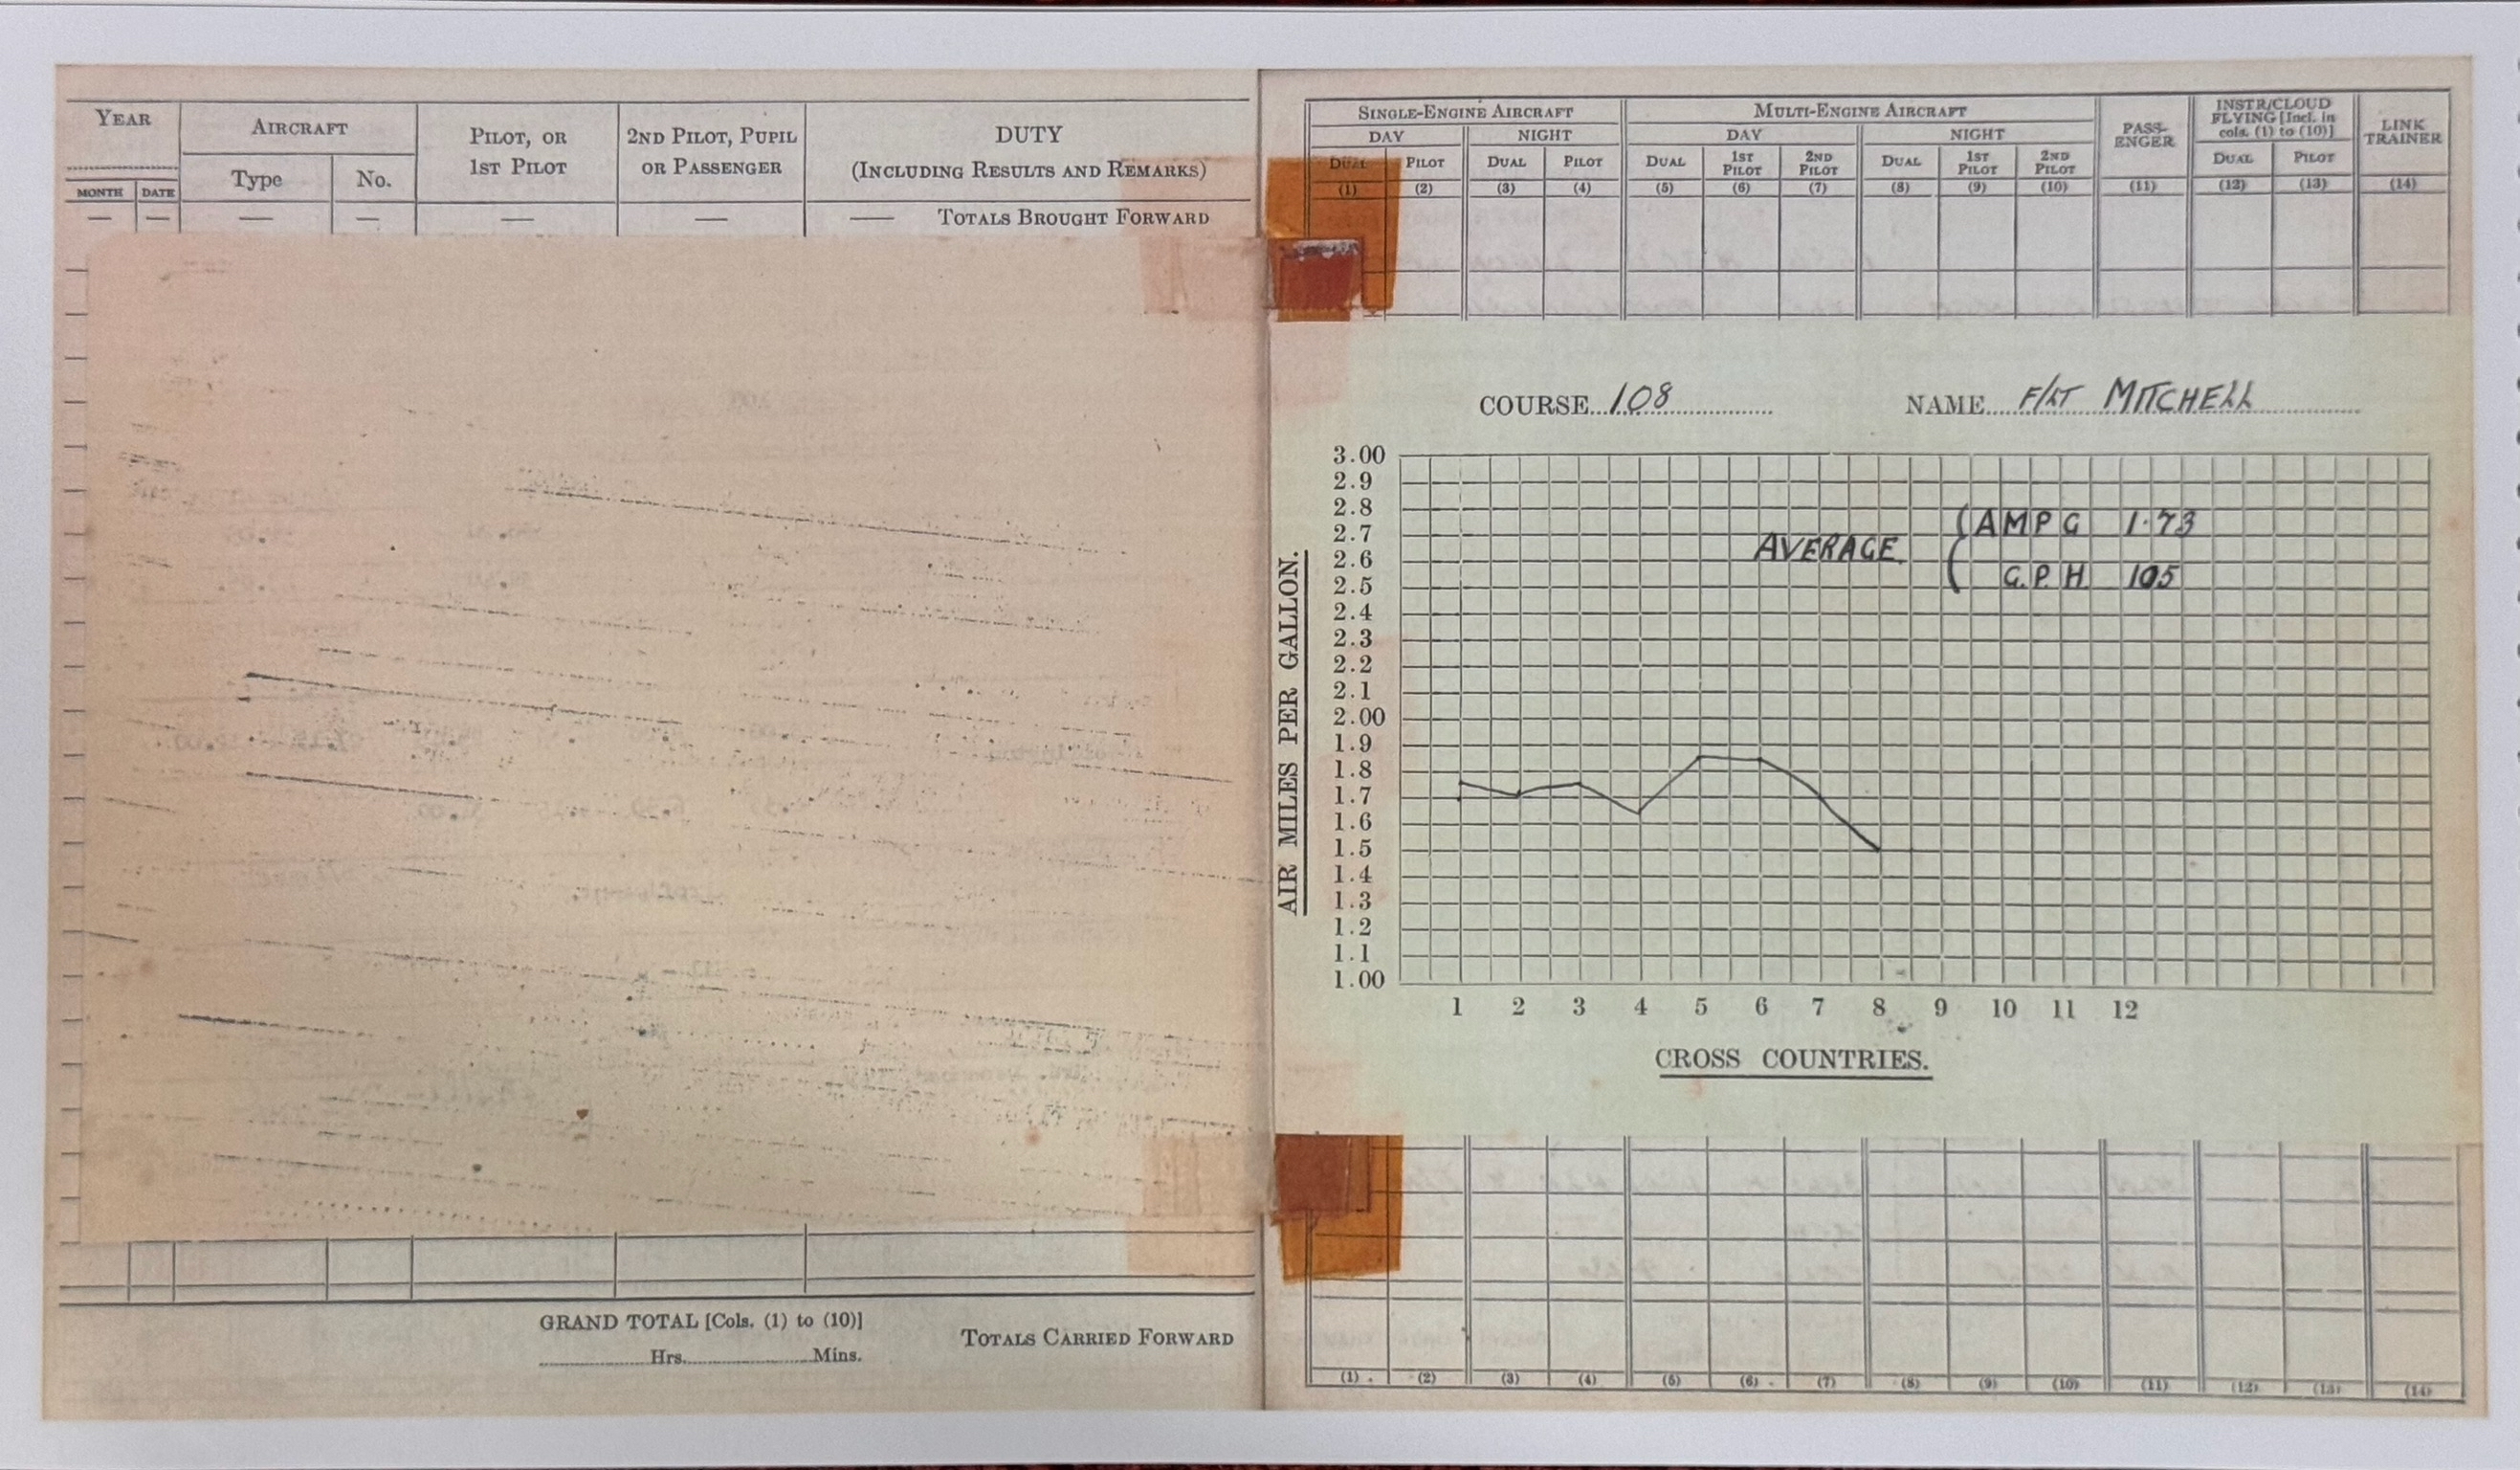 YEAR
AIRCRAFT
PILOT, OR
1ST PILOT
2ND PILOT, PUPIL
OR PASSENGER
DUTY
(INCLUDING RESULTS AND REMARKS)
MONTH DATE Type No.
— — — — — — — TOTALS BROUGHT FORWARD
GRAND TOTAL [Cols. (1) to (10)]
Hrs. Mins.
TOTALS CARRIED FORWARD
SINGLE-ENGINE AIRCRAFT MULTI-ENGINE AIRCRAFT
PASS-
ENGER
INSTR/CLOUD
FLYING [Incl. in
cols. (1) to (10)]
LINK
TRAINER
DAY NIGHT DAY NIGHT
DUAL PILOT DUAL PILOT DUAL 1ST PILOT 2ND PILOT DUAL 1ST PILOT 2ND PILOT DUAL PILOT
(1) (2) (3) (4) (5) (6) (7) (8) (9) (10) (11) (12) (13) (14)
COURSE 108 NAME F/LT MITCHELL
AIR MILES PER GALLON.
3.00
2.9
2.8
2.7
2.6
2.5
2.4
2.3
2.2
2.1
2.00
1.9
1.8
1.7
1.6
1.5
1.4
1.3
1.2
1.1
1.00
AVERAGE
(AMPG 1.73
G.P.H 105
1 2 3 4 5 6 7 8 9 10 11 12
CROSS COUNTRIES.
(1) (2) (3) (4) (5) (6) (7) (8) (9) (10) (11) (12) (13) (14)